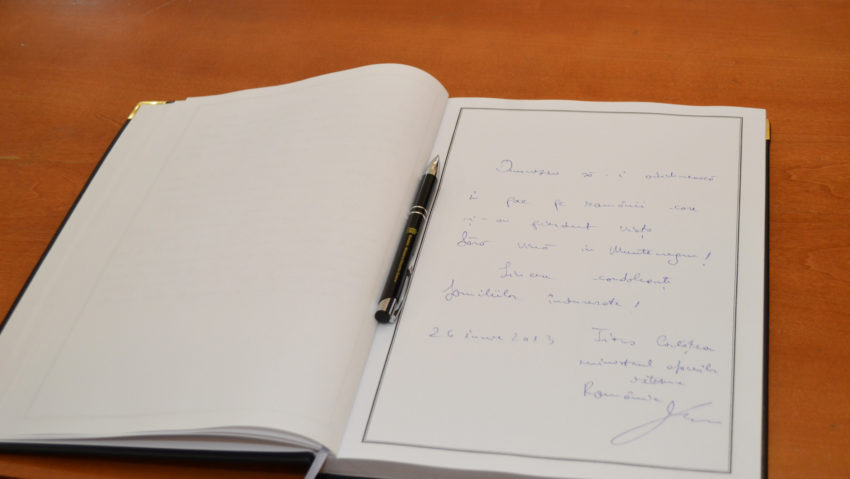 Dumnezeu să-i odihnească
în pace pe românii care
și-au pierdut viața
fără vină în Muntenegru!
Sincere condoleanțe
familiilor îndurerate!
26 iunie 2013
Titus Corlățean
ministrul afacerilor
externe
România